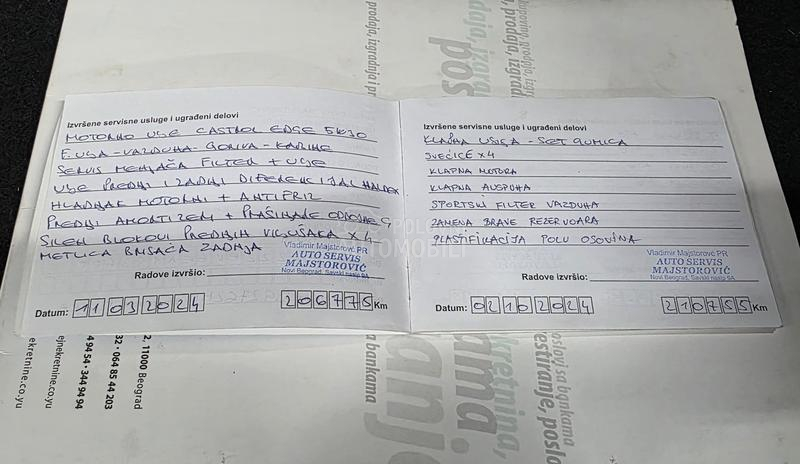 Izvršene servisne usluge i ugrađeni delovi
MOTORNO ULJE CASTROL EDGE 5W30
F. ULJA - VAZDUHA - GORIVA - KABINE
SERVIS MENJAČA FILTER + ULJE
ULJE PREDNJI I ZADNJI DIFERENCIJAL HALDEX
HLADNJAK MOTORNI + ANTIFRIZ
PREDNJI AMORTIZERI + PRAŠINARI ODBOJNICI
SILEN BLOKOVI PREDNJIH VILJUŠAKA X 4
METLICA BRISAČA ZADNJA
Vladimir Majstorović PR
AUTO SERVIS
MAJSTOROVIĆ
Novi Beograd, Savski nasip 9A
Radove izvršio:
Datum: 11 03 2024 206775 Km
Izvršene servisne usluge i ugrađeni delovi
KLAPNA USISA - SET GUMICA
SVEĆICE X4
KLAPNA MOTORA
KLAPNA AUSPUHA
SPORTSKI FILTER VAZDUHA
ZAMENA BRAVE REZERVOARA
PLASTIFIKACIJA POLU OSOVINA
Vladimir Majstorović PR
AUTO SERVIS
MAJSTOROVIĆ
Novi Beograd, Savski nasip 9A
Radove izvršio:
Datum: 02 10 2024 210755 Km
ejnekretnine.co.yu
, 11000 Beograd
32 · 064 85 44 203
4 94 54 · 344 94 94
a bankama